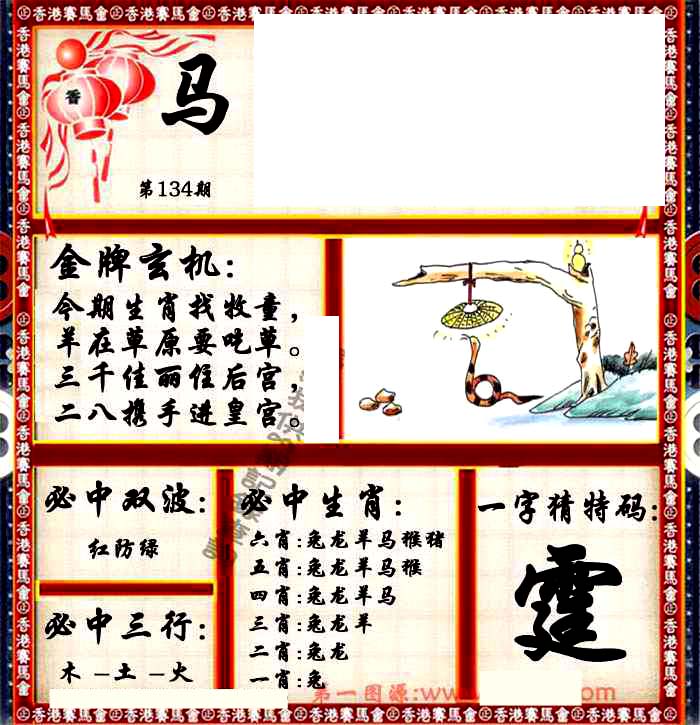 香港賽馬會
香
马
第134期
金牌玄机:
今期生肖找牧童,
羊在草原要吃草。
三千佳丽住后宫,
二八携手进皇宫。
必中双波:
红防绿
必中三行:
木-土-火
必中生肖:
六肖:兔龙羊马猴猪
五肖:兔龙羊马猴
四肖:兔龙羊马
三肖:兔龙羊
二肖:兔龙
一肖:兔
一字猜特码:
霆
第一图源:www
.com